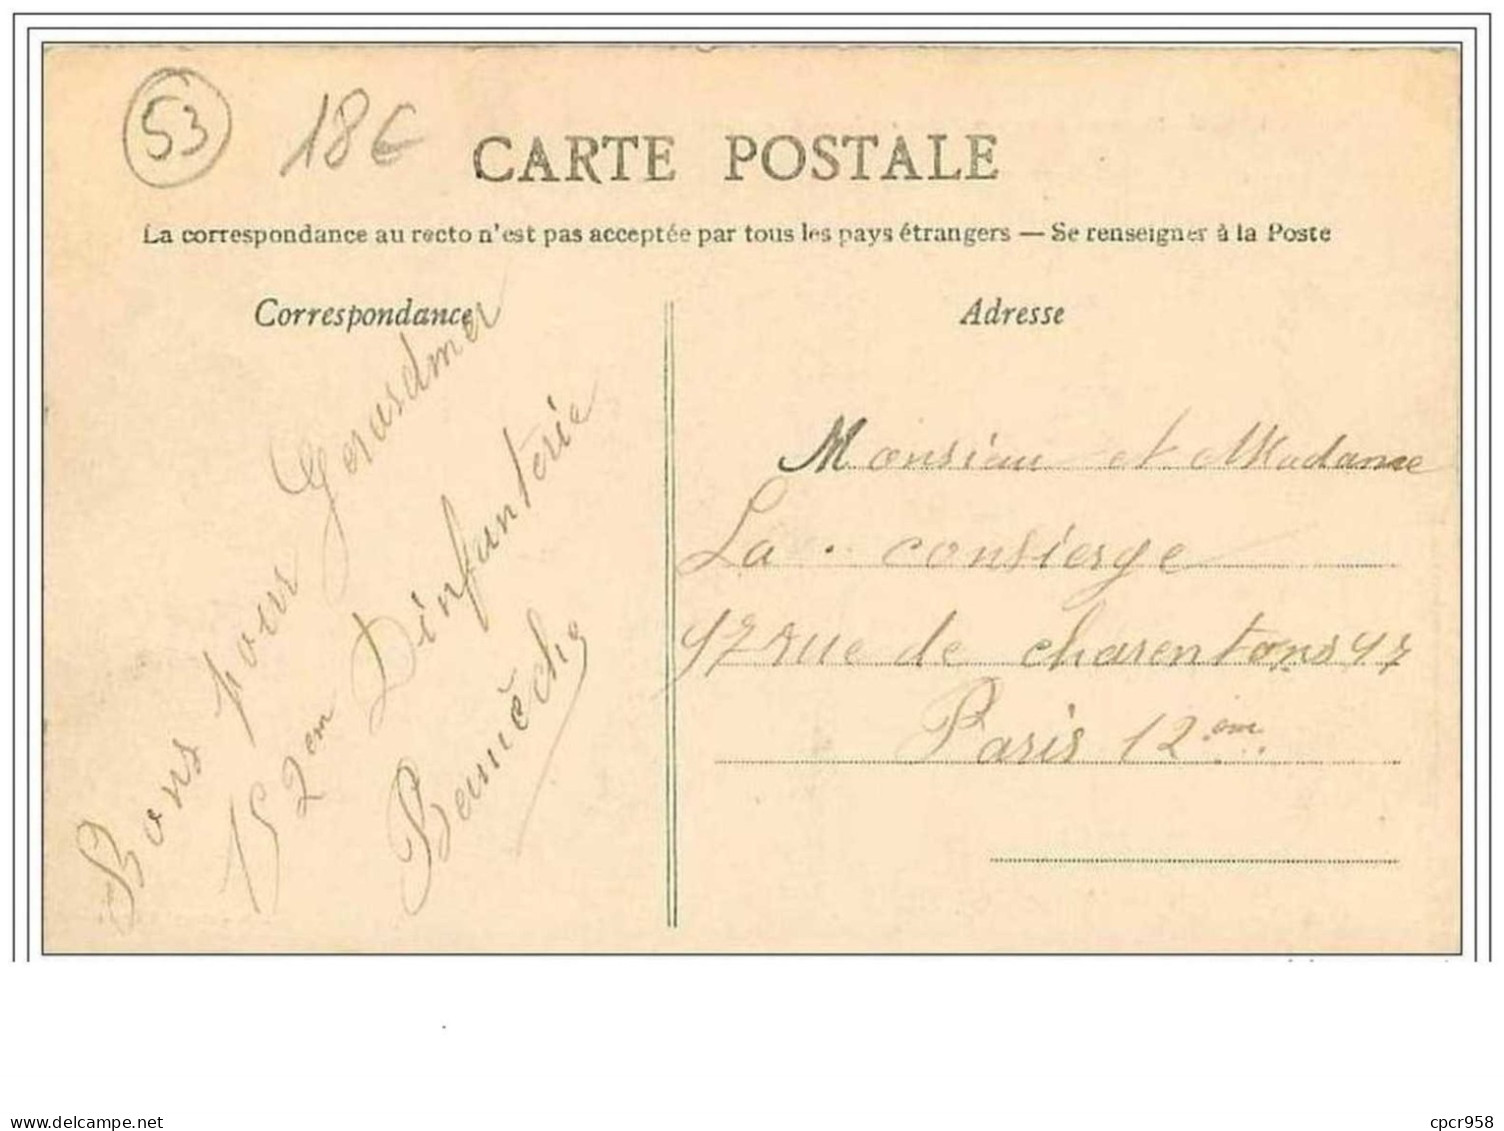 53 18€
CARTE POSTALE
La correspondance au recto n'est pas acceptée par tous les pays étrangers — Se renseigner à la Poste
Correspondance
Bons pour Gerasdmer
152em D'infanterie
Adresse
Monsieur et Madame
La . consierge
97 rue de charentons 97
Paris 12em
delcampe.net
cpcr958